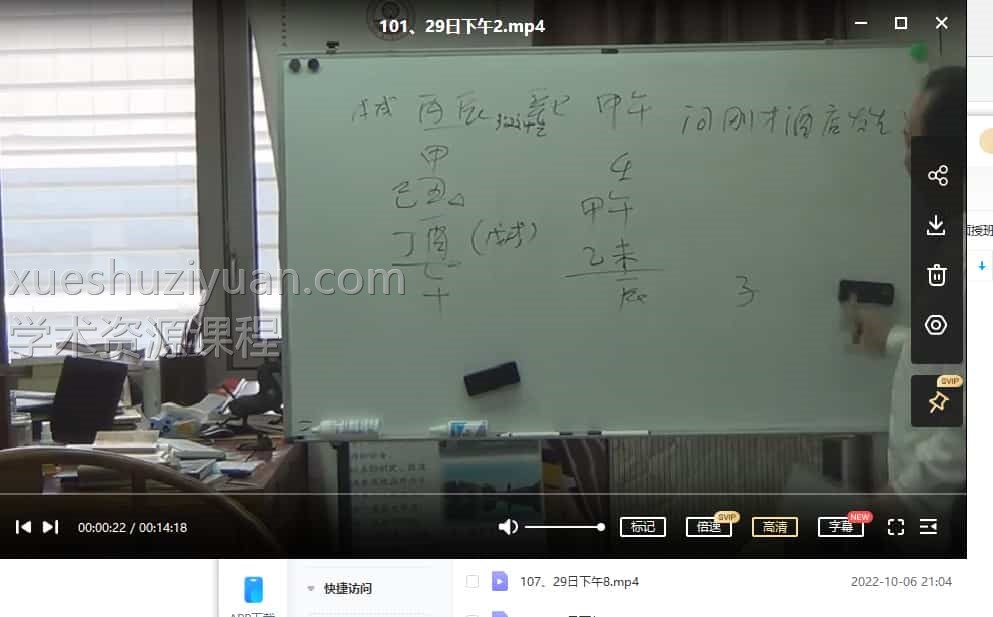 101、29日下午2.mp4
戊戌 丙辰 甲午 问刚才酒店发生
甲
己丑△
丁酉(戊戌)
十
生
甲午
乙未
辰
子
xueshuziyuan.com
学术资源课程
面授班
SVIP
00:00:22 / 00:14:18
标记
倍速
SVIP
高清
字幕
NEW
快捷访问
107、29日下午8.mp4
2022-10-06 21:04
APP下载